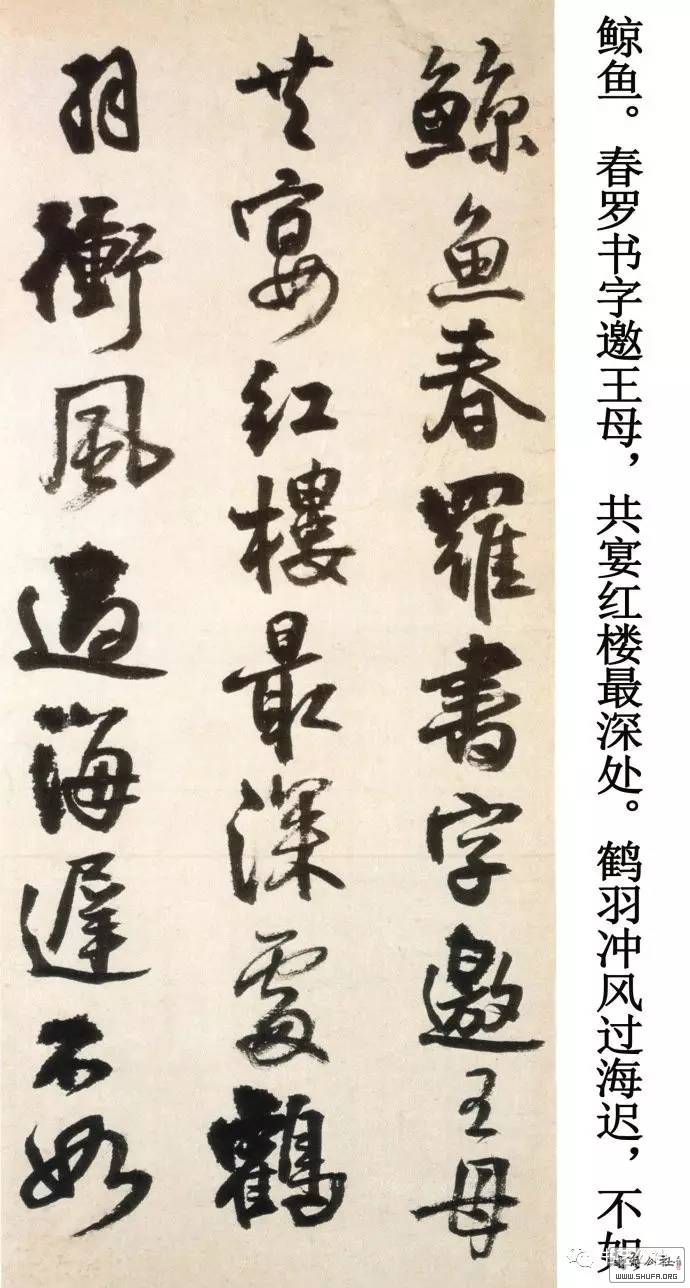 鲸鱼。春罗书字邀王母，共宴红楼最深处。鹤羽冲风过海迟，不如
鯨魚春羅書字邀王母
共宴紅樓最深處鶴
羽衝風過海遲不如
WWW.SHUFA.ORG